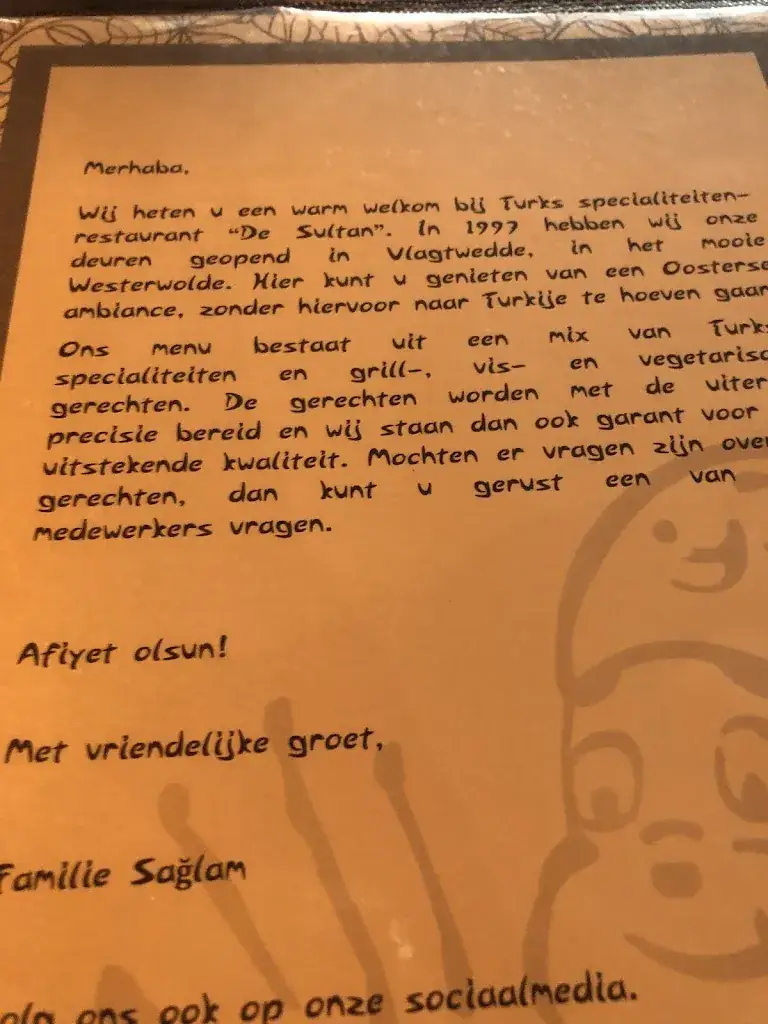 Merhaba,
Wij heten u een warm welkom bij Turks specialiteiten-
restaurant “De Sultan”. In 1997 hebben wij onze
deuren geopend in Vlagtwedde, in het mooie
Westerwolde. Hier kunt u genieten van een Oosterse
ambiance, zonder hiervoor naar Turkije te hoeven gaan
Ons menu bestaat uit een mix van Turks
specialiteiten en grill-, vis- en vegetarisc
gerechten. De gerechten worden met de uiter
precisie bereid en wij staan dan ook garant voor
uitstekende kwaliteit. Mochten er vragen zijn over
gerechten, dan kunt u gerust een van
medewerkers vragen.
Afiyet olsun!
Met vriendelijke groet,
Familie Sağlam
olg ons ook op onze sociaalmedia.